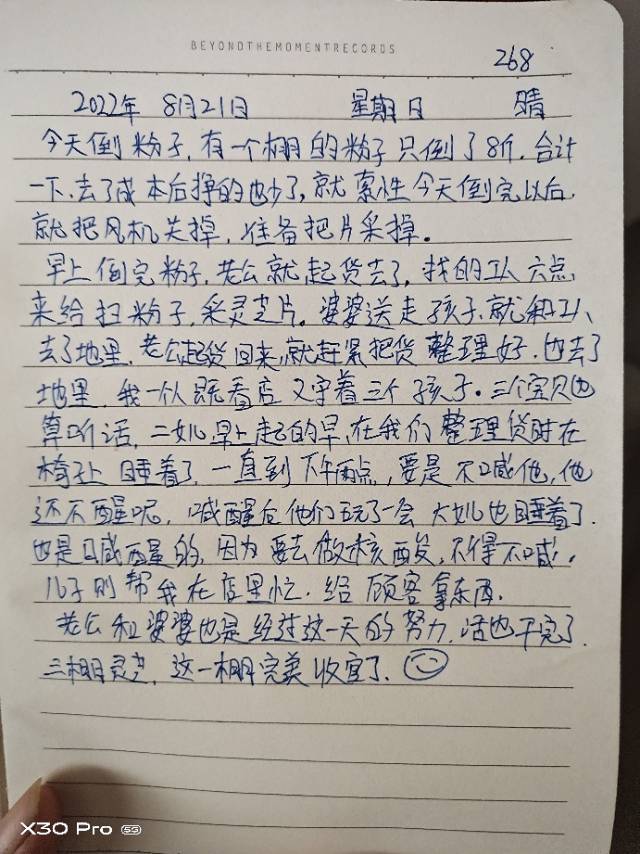 BEYONDTHEMOMENTRECORDS
268
2022年 8月21日 星期日 晴
今天倒粉子,有一个棚的粉子只倒了8斤.合计
一下.去了成本后挣的也少了,就索性今天倒完以后.
就把风机关掉,准备把片采掉。
早上倒完粉子,老公就起货去了,找的工人六点
来给扫粉子,采灵芝片。婆婆送走孩子.就和工人
去了地里,老公起货回来,就赶紧把货整理好.也去了
地里.我一个人既看店又守着三个孩子.三个宝贝也
算听话,二妞早上起的早,在我们整理货时在
椅子上睡着了,一直到下午两点,要是不喊他,他
还不醒呢,喊醒后他们玩了一会 大妞也睡着了.
也是喊醒的,因为要去做核酸,不得不喊.
儿子则帮我在店里忙.给顾客拿东西.
老公和婆婆也是经过这一天的努力,活也干完了.
三棚灵芝,这一棚完美收官了.
X30 Pro 5G